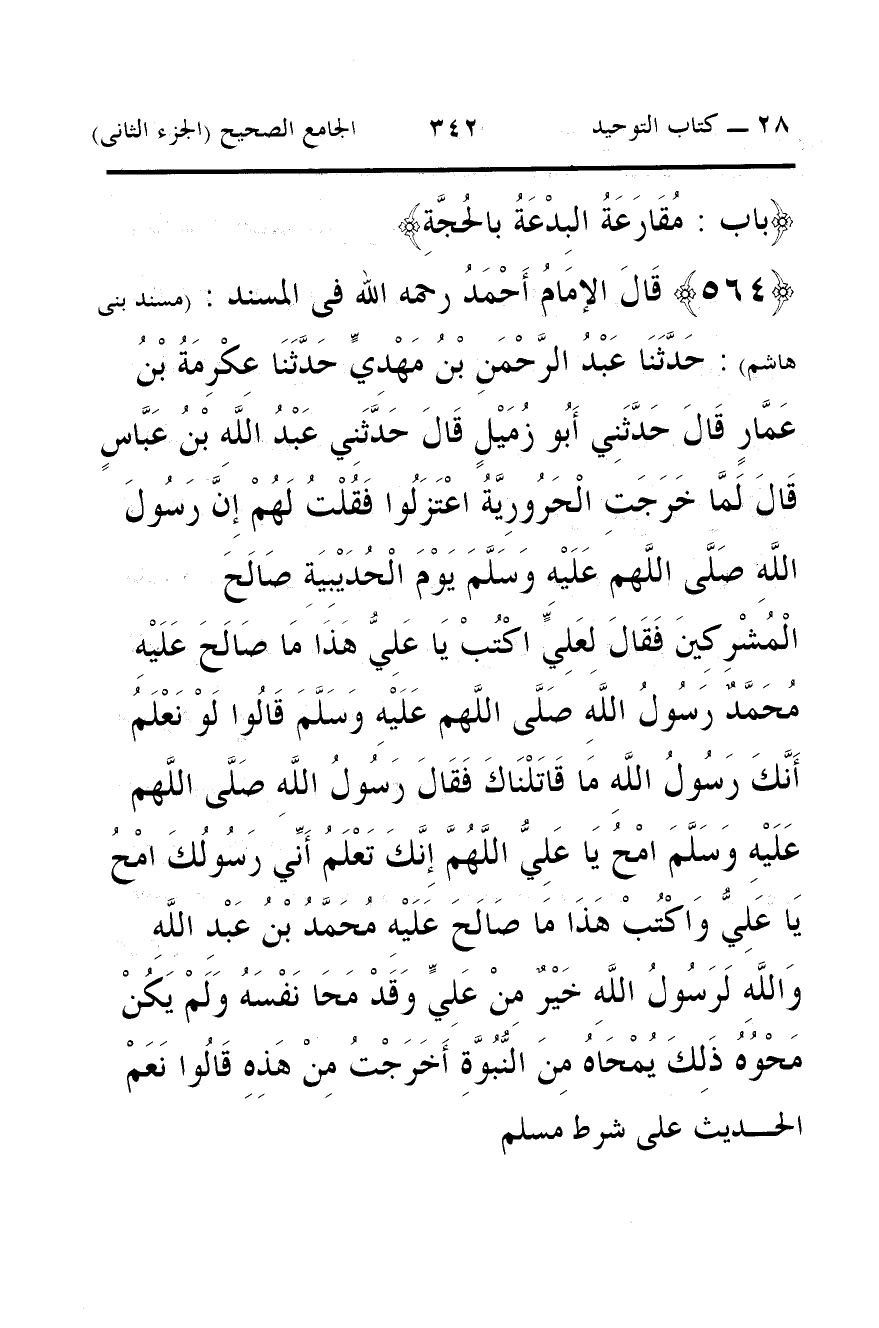 ٢٨ ــ كتاب التوحيد ٣٤٢ الجامع الصحيح (الجزء الثانى)
﴿باب : مُقَارَعَةُ البِدْعَةُ بالحُجَّةِ﴾
﴿٥٦٤﴾ قَالَ الإمَامُ أَحْمَدُ رحمه الله فى المسند : (مسند بنى
هاشم) : حَدَّثَنَا عَبْدُ الرَّحْمَنِ بْنُ مَهْدِيٍّ حَدَّثَنَا عِكْرِمَةُ بْنُ
عَمَّارٍ قَالَ حَدَّثَنِي أَبُو زُمَيْلٍ قَالَ حَدَّثَنِي عَبْدُ اللَّهِ بْنُ عَبَّاسٍ
قَالَ لَمَّا خَرَجَتِ الْحَرُورِيَّةُ اعْتَزَلُوا فَقُلْتُ لَهُمْ إِنَّ رَسُولَ
اللَّهِ صَلَّى اللَّهم عَلَيْهِ وَسَلَّمَ يَوْمَ الْحُدَيْبِيَةِ صَالَحَ
الْمُشْرِكِينَ فَقَالَ لِعَلِيٍّ اكْتُبْ يَا عَلِيُّ هَذَا مَا صَالَحَ عَلَيْهِ
مُحَمَّدٌ رَسُولُ اللَّهِ صَلَّى اللَّهم عَلَيْهِ وَسَلَّمَ قَالُوا لَوْ نَعْلَمُ
أَنَّكَ رَسُولُ اللَّهِ مَا قَاتَلْنَاكَ فَقَالَ رَسُولُ اللَّهِ صَلَّى اللَّهم
عَلَيْهِ وَسَلَّمَ امْحُ يَا عَلِيُّ اللَّهُمَّ إِنَّكَ تَعْلَمُ أَنِّي رَسُولُكَ امْحُ
يَا عَلِيُّ وَاكْتُبْ هَذَا مَا صَالَحَ عَلَيْهِ مُحَمَّدُ بْنُ عَبْدِ اللَّهِ
وَاللَّهِ لَرَسُولُ اللَّهِ خَيْرٌ مِنْ عَلِيٍّ وَقَدْ مَحَا نَفْسَهُ وَلَمْ يَكُنْ
مَحْوُهُ ذَلِكَ يُمْحَاهُ مِنَ النُّبُوَّةِ أَخَرَجْتُ مِنْ هَذِهِ قَالُوا نَعَمْ
الحـــديث على شرط مسلم